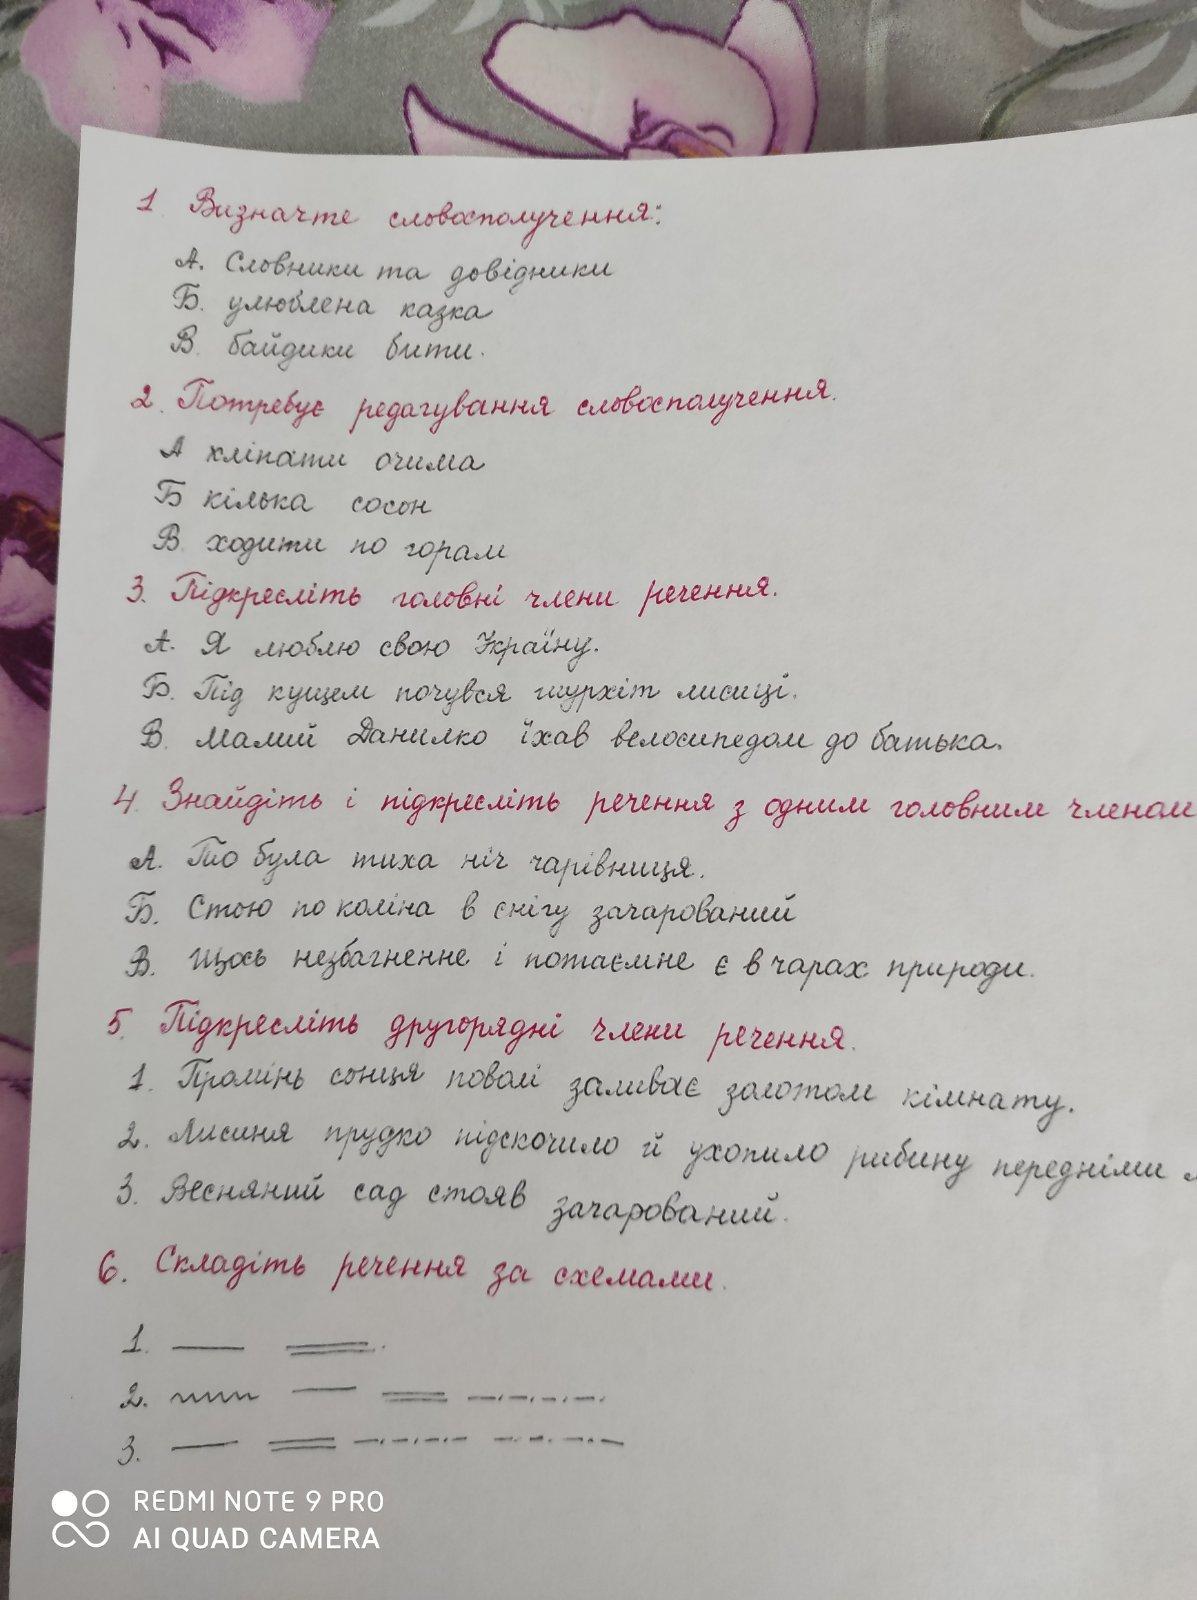 1. Визначте словосполучення:
А. Словники та довідники
Б. улюблена казка
В. байдики бити.
2. Потребує редагування словосполучення.
А хліпати очима
Б кілька сосон
В. ходити по горам
3. Підкресліть головні члени речення.
А. Я люблю свою Україну.
Б. Під кущем почувся шурхіт лисиці.
В. Малий Данилко їхав велосипедом до батька.
4. Знайдіть і підкресліть речення з одним головним членом
А. То була тиха ніч чарівниця.
Б. Стою по коліна в снігу зачарований
В. Щось незбагненне і потаємне є в чарах природи.
5. Підкресліть другорядні члени речення.
1. Промінь сонця поволі заливає золотом кімнату.
2. Лисиня прудко підскочило й ухопило рибину передніми
3. Весняний сад стояв зачарований.
6. Складіть речення за схемами.
1.
2.
3.
REDMI NOTE 9 PRO
AI QUAD CAMERA